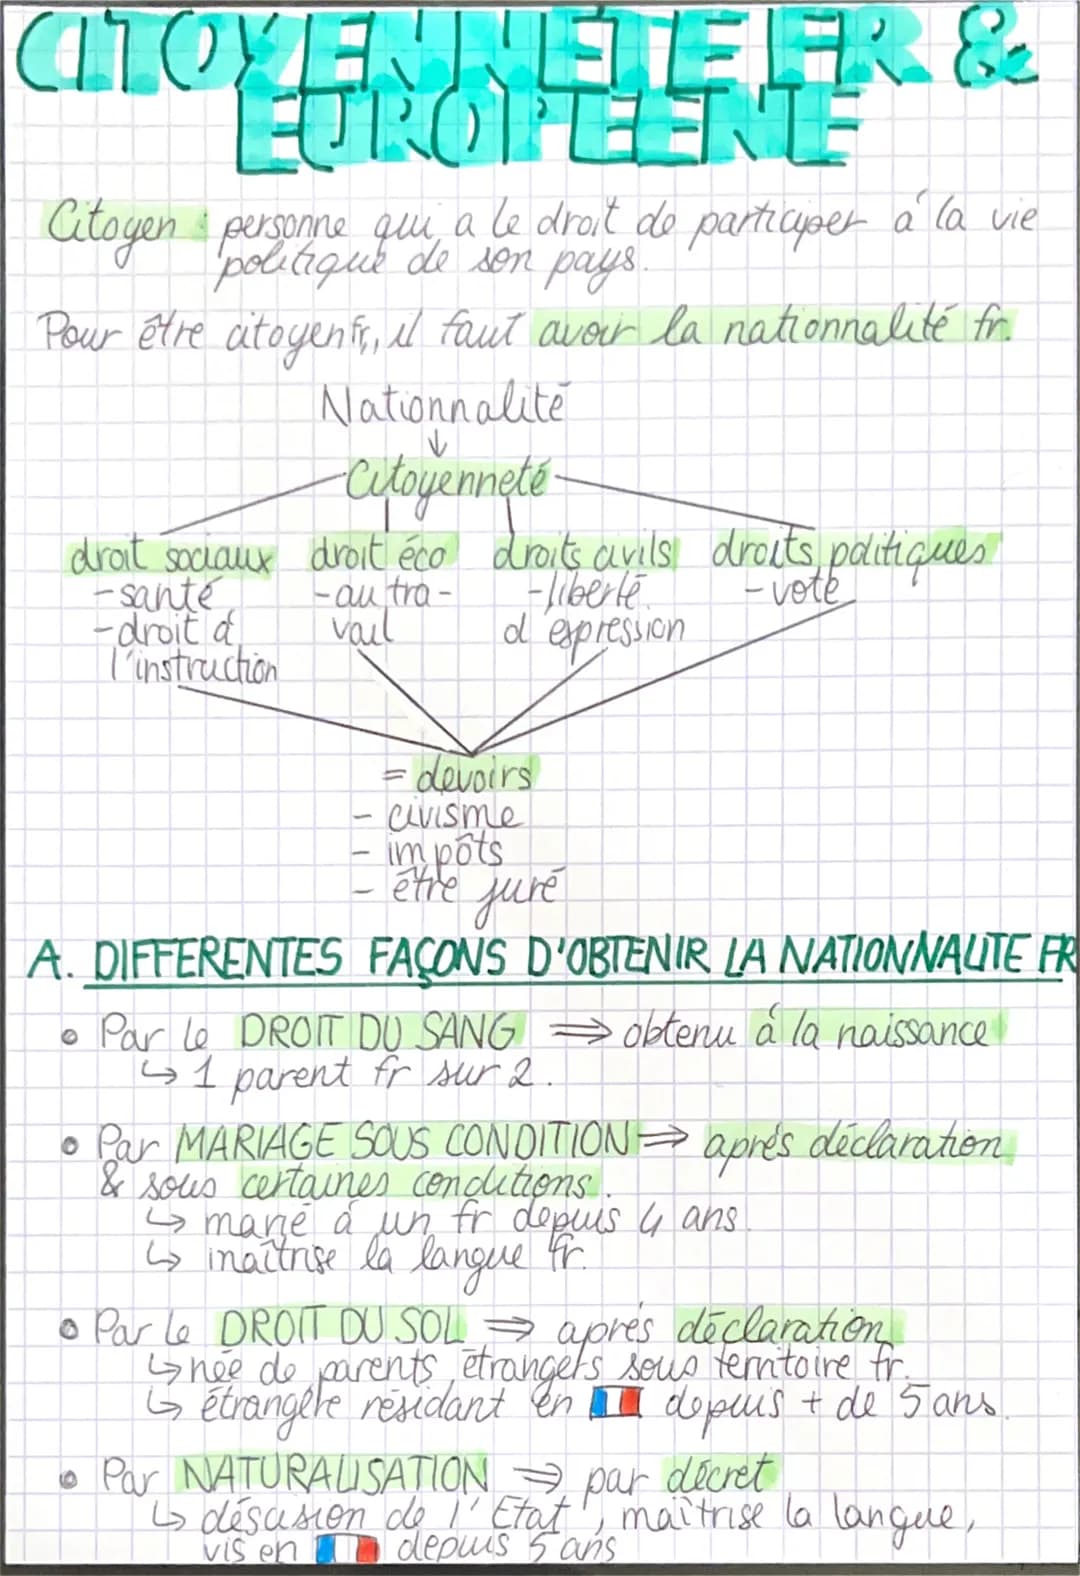 CITOYENNETE FR &
EUROPEENE
Citoyen : personne qui a le droit de participer á la vie
politique de son pays.
Pour être citoyen fr, il faut avoir la nationnalité fr.
Nationnalité
↓
Citoyenneté
droit sociaux droit éco droits civils droits politiques
-santé -au tra- -liberté -vote
-droit á vail d'expression
l'instruction
= devoirs
- civisme
- impôts
- être juré
A. DIFFERENTES FAÇONS D'OBTENIR LA NATIONNALITE FR
• Par le DROIT DU SANG ⇒ obtenu á la naissance
↳ 1 parent fr sur 2.
• Par MARIAGE SOUS CONDITION ⇒ aprés déclaration
& sous certaines conditions.
↳ marié á un fr depuis 4 ans.
↳ maîtrise la langue fr.
• Par le DROIT DU SOL ⇒ aprés déclaration
↳ née de parents étrangers sous territoire fr.
↳ étrangére résidant en depuis + de 5 ans.
• Par NATURALISATION ⇒ par décret
↳ désision de l'Etat, maîtrise la langue,
vis en depuis 5 ans